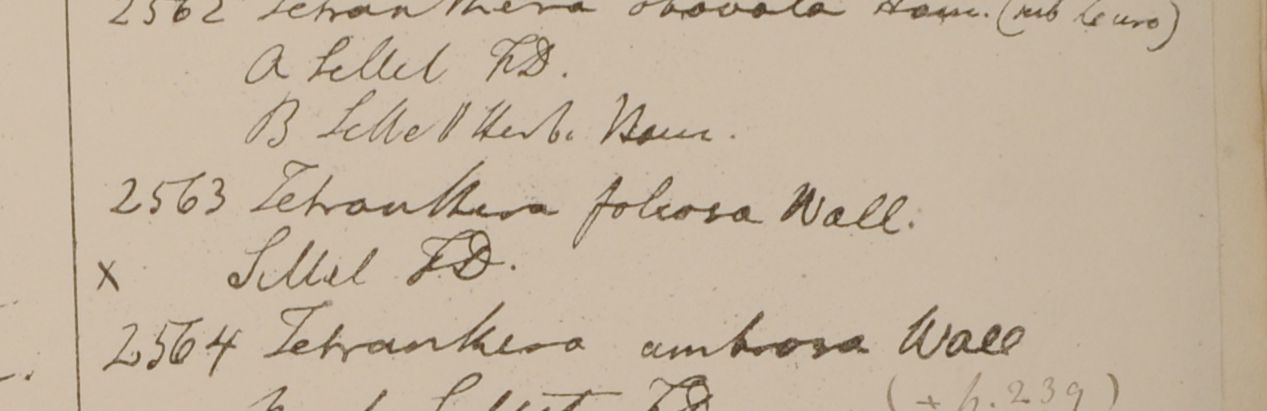 2562 Tetranthera obovata Ham. (sub Lauro)
A Sillet F.D.
B Sillet Herb. Ham.
2563 Tetranthera foliosa Wall.
x Sillet F.D.
2564 Tetranthera umbrosa Wall
Sillet F.D
(+ p. 239)